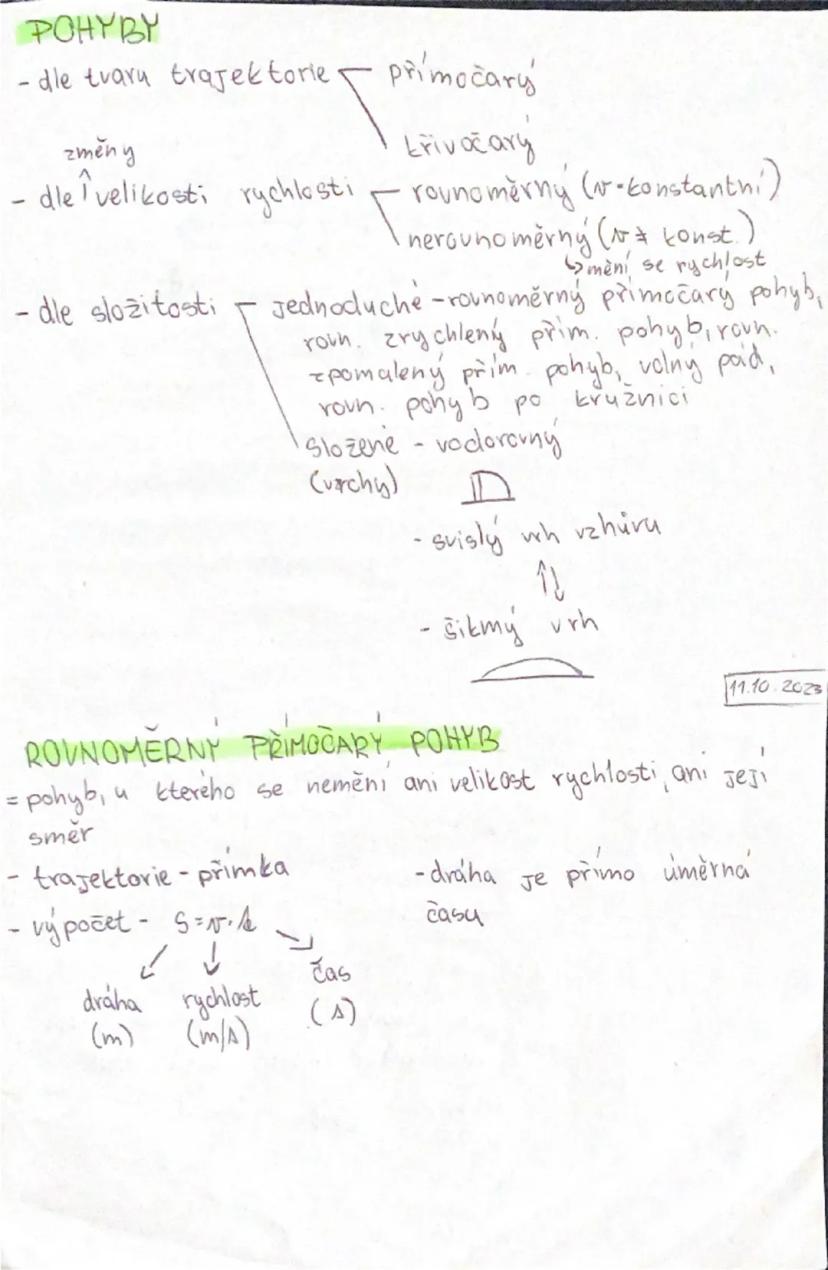 POHYBY
- dle tvaru trajektorie přímočarý
křivočarý
změny
- dle velikosti rychlosti rovnoměrný (v = konstantní)
nerovnoměrný (v ≠ konst.)
↳ mění se rychlost
- dle složitosti jednoduché - rovnoměrný přímočarý pohyb,
rovn. zrychlený přím. pohyb, rovn.
zpomalený přím. pohyb, volný pád,
rovn. pohyb po kružnici
složené - vodorovný
(vrchy)
- svislý vrh vzhůru
↑↓
- šikmý vrh
11.10.2023
ROVNOMĚRNÝ PŘÍMOČARÝ POHYB
= pohyb, u kterého se nemění ani velikost rychlosti, ani její
směr
- trajektorie - přímka
- dráha je přímo úměrná
času
- výpočet - s = v · t
↙ ↓ ↘
dráha rychlost čas
(m) (m/s) (s)